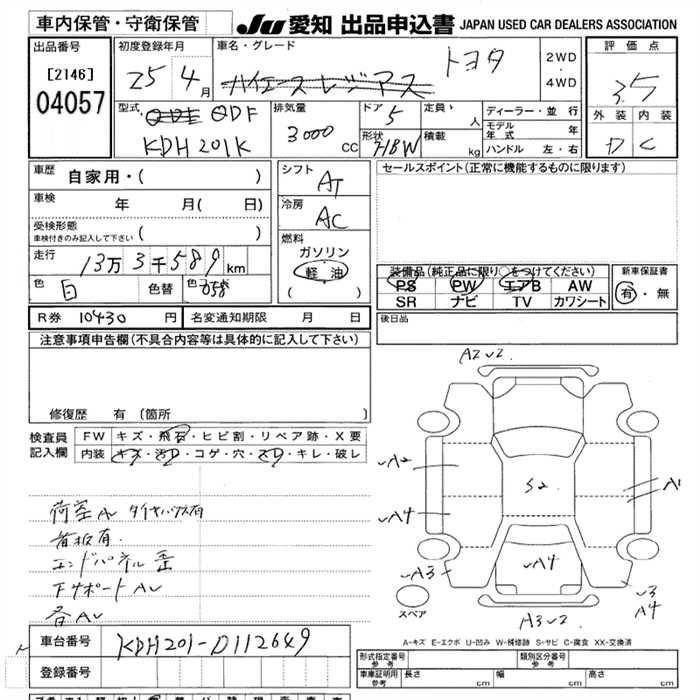 車内保管・守衛保管
JU 愛知 出品申込書 JAPAN USED CAR DEALERS ASSOCIATION
出品番号
[2146]
04057
初度登録年月
25年 4月
車名・グレード
トヨタ
ハイエースレジアス
2WD
4WD
評価点
3.5
外装 内装
D C
型式
QDF QDF
KDH201K
排気量
3000
CC
ドア
5
形状
HBW
定員
人
積載
kg
ディーラー・並行
モデル年式 年
ハンドル 左・右
車歴
自家用・( )
車検
年 月( 日)
受検形態
車検付きのみ記入して下さい ( )
走行
13万3千589km
色
白
色替
色No.
058
シフト
AT
冷房
AC
燃料
ガソリン
軽油
( )
セールスポイント(正常に機能するものに限ります)
装備品(純正品に限り○をつけてください)
PS PW エアB AW
SR ナビ TV カワシート
新車保証書
有・無
R券 10430 円
名変通知期限 月 日
後日品
注意事項申告欄(不具合内容等は具体的に記入して下さい)
修復歴 有 [箇所
検査員
記入欄
FW キズ・飛石・ヒビ割・リペア跡・X要
内装 キズ・汚れ・コゲ・穴・スレ・キレ・破レ
荷室AU タイヤハウス有
看板有.
エンドパネル歪
下サポートAU
各AU
A2U2.
A2
A4
S2
A1
A4
A3
U3
A4
A3U2.
スペア
A-キズ E-エクボ U-凹み W-補修跡 S-サビ C-腐食 XX-交換済
車台番号
KDH201-0112649
登録番号
形式指定番号
参考
類別区分番号
参考
車庫証明用
参考
長さ cm
幅 cm
高さ cm